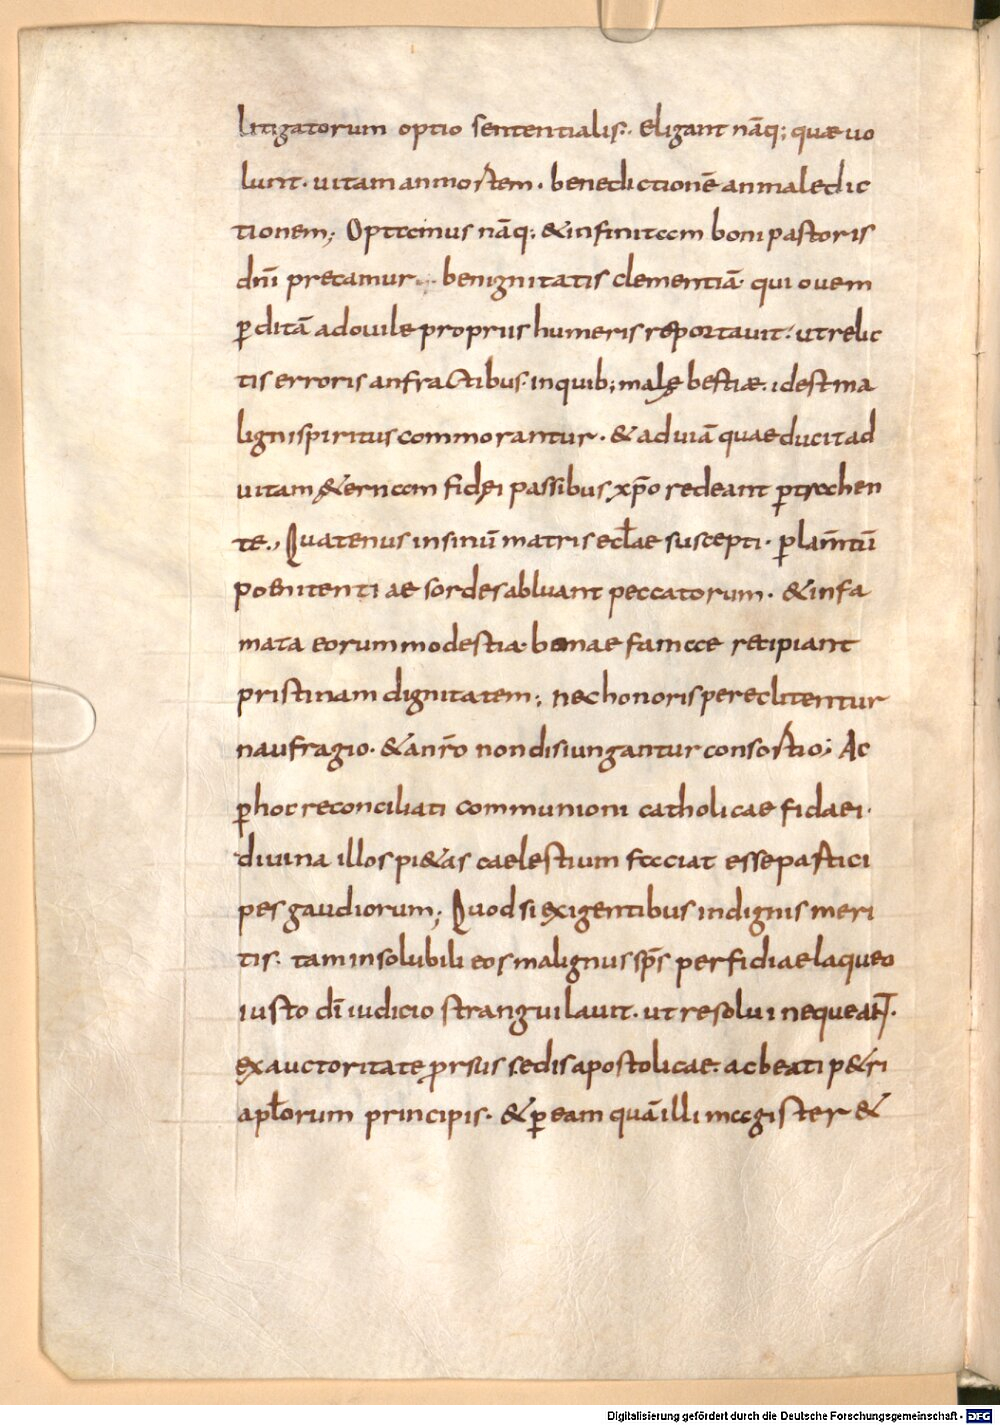 litigatorum optio sententialis; eligant nāq; quæ uo
lunt· uitam an mortem· benedictionē an maledic
tionem; Optamus nāq; & infinitam boni pastoris
dn̄i precamur benignitatis clementiā· qui ouem
ꝑditā ad ouile propriis humeris reportauit· ut relic
tis erroris anfractibus· in quib; malę bestiæ· id est ma
ligni spiritus commorantur· & ad uiā quae ducit ad
uitam &ernam fidei passibus xp̄o redeant ꝑtrahen
te·, Quatenus in sinū matris eccłae suscepti· ꝑ lam̄tū
poenitentiae sordes abluant peccatorum· & infa
mata eorum modestia· bonae famae recipiant
pristinam dignitatem; nec honoris pereclitentur
naufragio· & a nr̄o non disiungantur consortio; Ac
ꝑ hoc reconciliati communioni catholicae fidaei·
diuina illos pi&as caelestium faciat esse partici
pes gaudiorum; Quod si exigentibus indignis meri
tis· tam insolubili eos malignus sp̄s perfidiae laqueo
iusto dī iudicio stranguilauit· ut resolui nequeant·
ex auctoritate prorsus sedis apostolicae· ac beati p&ri
aposto̅lorum principis· & ꝑ eam quā illi magister &
Digitalisierung gefördert durch die Deutsche Forschungsgemeinschaft - DFG